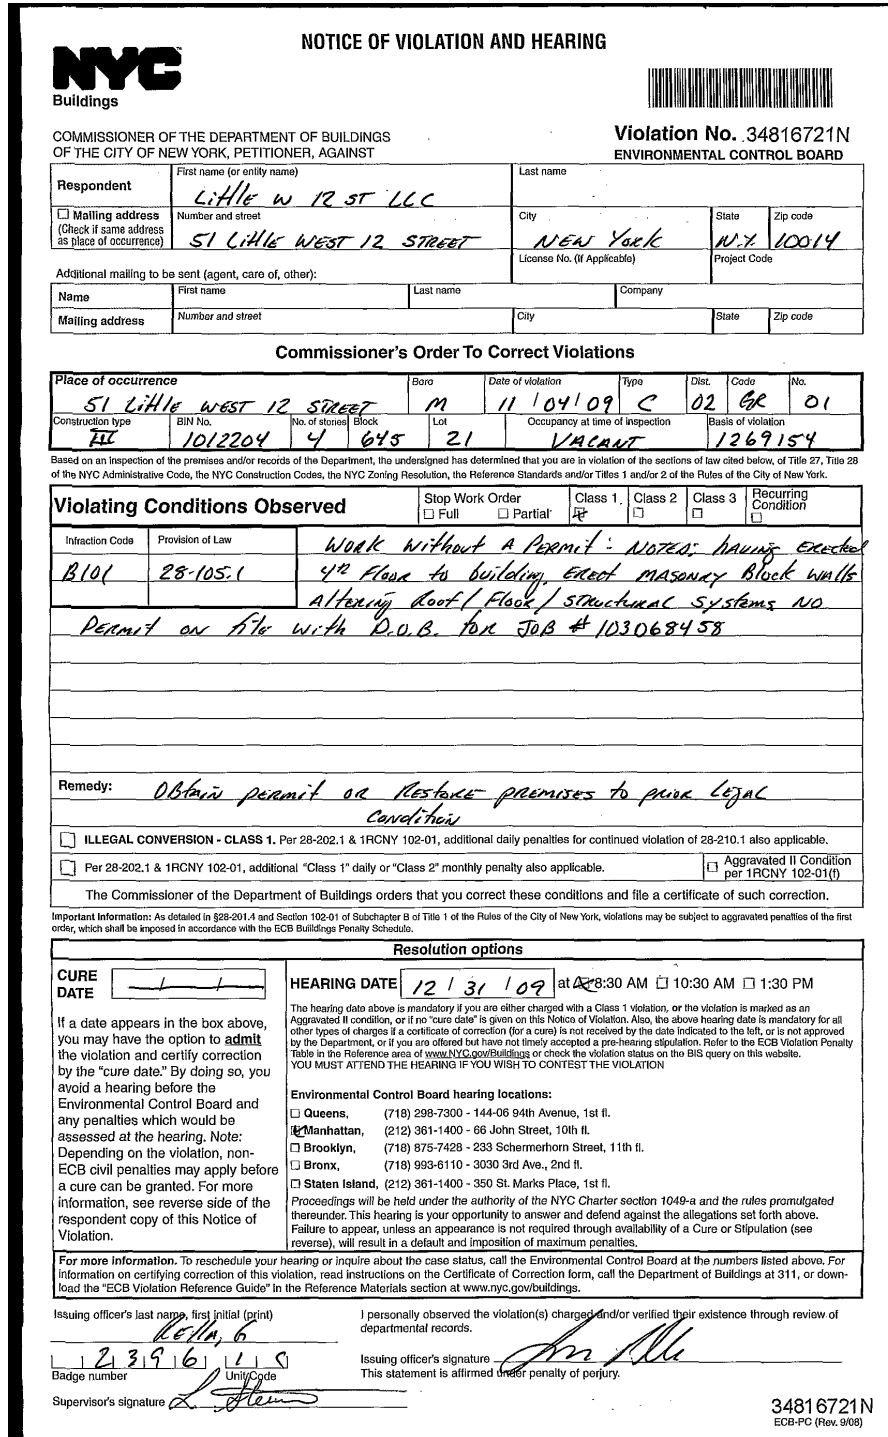 NOTICE OF VIOLATION AND HEARING
NYC
Buildings
COMMISSIONER OF THE DEPARTMENT OF BUILDINGS
OF THE CITY OF NEW YORK, PETITIONER, AGAINST
Violation No. 34816721N
ENVIRONMENTAL CONTROL BOARD
Respondent
First name (or entity name)
Last name
Little W 12 ST LLC
☐ Mailing address
(Check if same address
as place of occurrence)
Number and street
City
State
Zip code
51 Little WEST 12 STREET
NEW York
N.Y.
10014
License No. (If Applicable)
Project Code
Additional mailing to be sent (agent, care of, other):
Name
First name
Last name
Company
Mailing address
Number and street
City
State
Zip code
Commissioner's Order To Correct Violations
Place of occurrence
Boro
Date of violation
Type
Dist.
Code
No.
51 Little WEST 12 STREET
M
11/04/09
C
02
GR
01
Construction type
BIN No.
No. of stories
Block
Lot
Occupancy at time of inspection
Basis of violation
III
1012204
4
645
21
VACANT
1269154
Based on an inspection of the premises and/or records of the Department, the undersigned has determined that you are in violation of the sections of law cited below, of Title 27, Title 28
of the NYC Administrative Code, the NYC Construction Codes, the NYC Zoning Resolution, the Reference Standards and/or Titles 1 and/or 2 of the Rules of the City of New York.
Violating Conditions Observed
Stop Work Order
☐ Full ☐ Partial
Class 1
Class 2
Class 3
Recurring
Condition
Infraction Code
Provision of Law
WORK Without A Permit: NOTES: having Erected
B101
28-105.1
4th Floor to building, Erect MASONRY Block WALLS
Altering Roof/Floor/STRUCTURAL Systems NO
PERMIT on file with D.O.B. for JOB #103068458
Remedy:
OBtain permit OR RESTORE PREMISES to prior Legal
Condition
☐ ILLEGAL CONVERSION - CLASS 1. Per 28-202.1 & 1RCNY 102-01, additional daily penalties for continued violation of 28-210.1 also applicable.
☐ Per 28-202.1 & 1RCNY 102-01, additional "Class 1" daily or "Class 2" monthly penalty also applicable.
☐ Aggravated II Condition
per 1RCNY 102-01(f)
The Commissioner of the Department of Buildings orders that you correct these conditions and file a certificate of such correction.
Important Information: As detailed in §28-201.4 and Section 102-01 of Subchapter B of Title 1 of the Rules of the City of New York, violations may be subject to aggravated penalties of the first
order, which shall be imposed in accordance with the ECB Buildings Penalty Schedule.
Resolution options
CURE
DATE
/ /
If a date appears in the box above,
you may have the option to admit
the violation and certify correction
by the "cure date." By doing so, you
avoid a hearing before the
Environmental Control Board and
any penalties which would be
assessed at the hearing. Note:
Depending on the violation, non-
ECB civil penalties may apply before
a cure can be granted. For more
information, see reverse side of the
respondent copy of this Notice of
Violation.
HEARING DATE 12/31/09 at ☒ 8:30 AM ☐ 10:30 AM ☐ 1:30 PM
The hearing date above is mandatory if you are either charged with a Class 1 violation, or the violation is marked as
an Aggravated II condition, or if no "cure date" is given on this Notice of Violation. Also, the above hearing date is mandatory for all
other types of charges if a certificate of correction (for a cure) is not received by the date indicated to the left, or is not approved
by the Department, or if you are offered but have not timely accepted a pre-hearing stipulation. Refer to the ECB Violation Penalty
Table in the Reference area of www.NYC.gov/Buildings or check the violation status on the BIS query on this website.
YOU MUST ATTEND THE HEARING IF YOU WISH TO CONTEST THE VIOLATION
Environmental Control Board hearing locations:
☐ Queens, (718) 298-7300 - 144-06 94th Avenue, 1st fl.
☒ Manhattan, (212) 361-1400 - 66 John Street, 10th fl.
☐ Brooklyn, (718) 875-7428 - 233 Schermerhorn Street, 11th fl.
☐ Bronx, (718) 993-6110 - 3030 3rd Ave., 2nd fl.
☐ Staten Island, (212) 361-1400 - 350 St. Marks Place, 1st fl.
Proceedings will be held under the authority of the NYC Charter section 1049-a and the rules promulgated
thereunder. This hearing is your opportunity to answer and defend against the allegations set forth above.
Failure to appear, unless an appearance is not required through availability of a Cure or Stipulation (see
reverse), will result in a default and imposition of maximum penalties.
For more information. To reschedule your hearing or inquire about the case status, call the Environmental Control Board at the numbers listed above. For
information on certifying correction of this violation, read instructions on the Certificate of Correction form, call the Department of Buildings at 311, or down-
load the "ECB Violation Reference Guide" in the Reference Materials section at www.nyc.gov/buildings.
Issuing officer's last name, first initial (print)
Rella, G
2396
Badge number
Unit Code
Supervisor's signature
I personally observed the violation(s) charged and/or verified their existence through review of
departmental records.
Issuing officer's signature
This statement is affirmed under penalty of perjury.
34816721N
ECB-PC (Rev. 9/08)